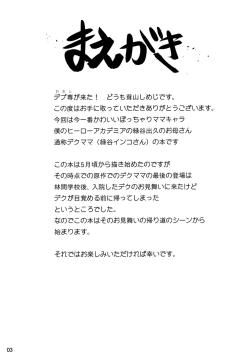 まえがき
デブ専が来た！ どうも背山しめじです。
この度はお手に取っていただきありがとうございます。
今回は今一番かわいいぽっちゃりママキャラ
僕のヒーローアカデミアの緑谷出久のお母さん
通称デクママ（緑谷インコさん）の本です
この本は5月頃から描き始めたのですが
その時点での原作でのデクママの最後の登場は
林間学校後、入院したデクのお見舞いに来たけど
デクが目覚める前に帰ってしまった
というところでした。
なのでこの本はそのお見舞いの帰り道のシーンから
始まります。
それではお楽しみいただければ幸いです。
03